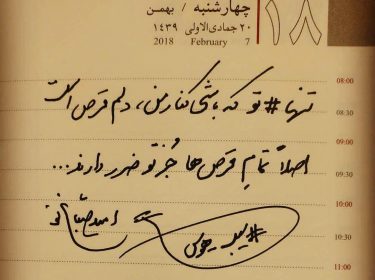 ۱۸
چهارشنبه / بهمن
۲۰ جمادی‌الاولی ۱۴۳۹
2018 February 7
08:00
تنها #تو که باشی کنار من، دلم قرص است
08:30
09:00
اصلاً تمامِ قرص‌ها جُز تو ضرر دارند...
09:30
10:00
امید صباغ نو
10:30
11:00